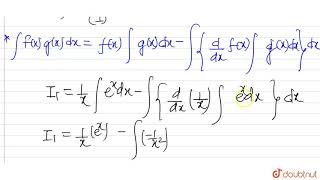 (1/x)
* ∫ f(x) g(x) dx = f(x) ∫ g(x) dx − ∫ { d/dx f(x) ∫ g(x) dx } dx
I₁ = 1/x ∫ eˣ dx − ∫ { d/dx (1/x) ∫ eˣ dx } dx
I₁ = 1/x (eˣ) − ∫ (−1/x²)
doubtnut